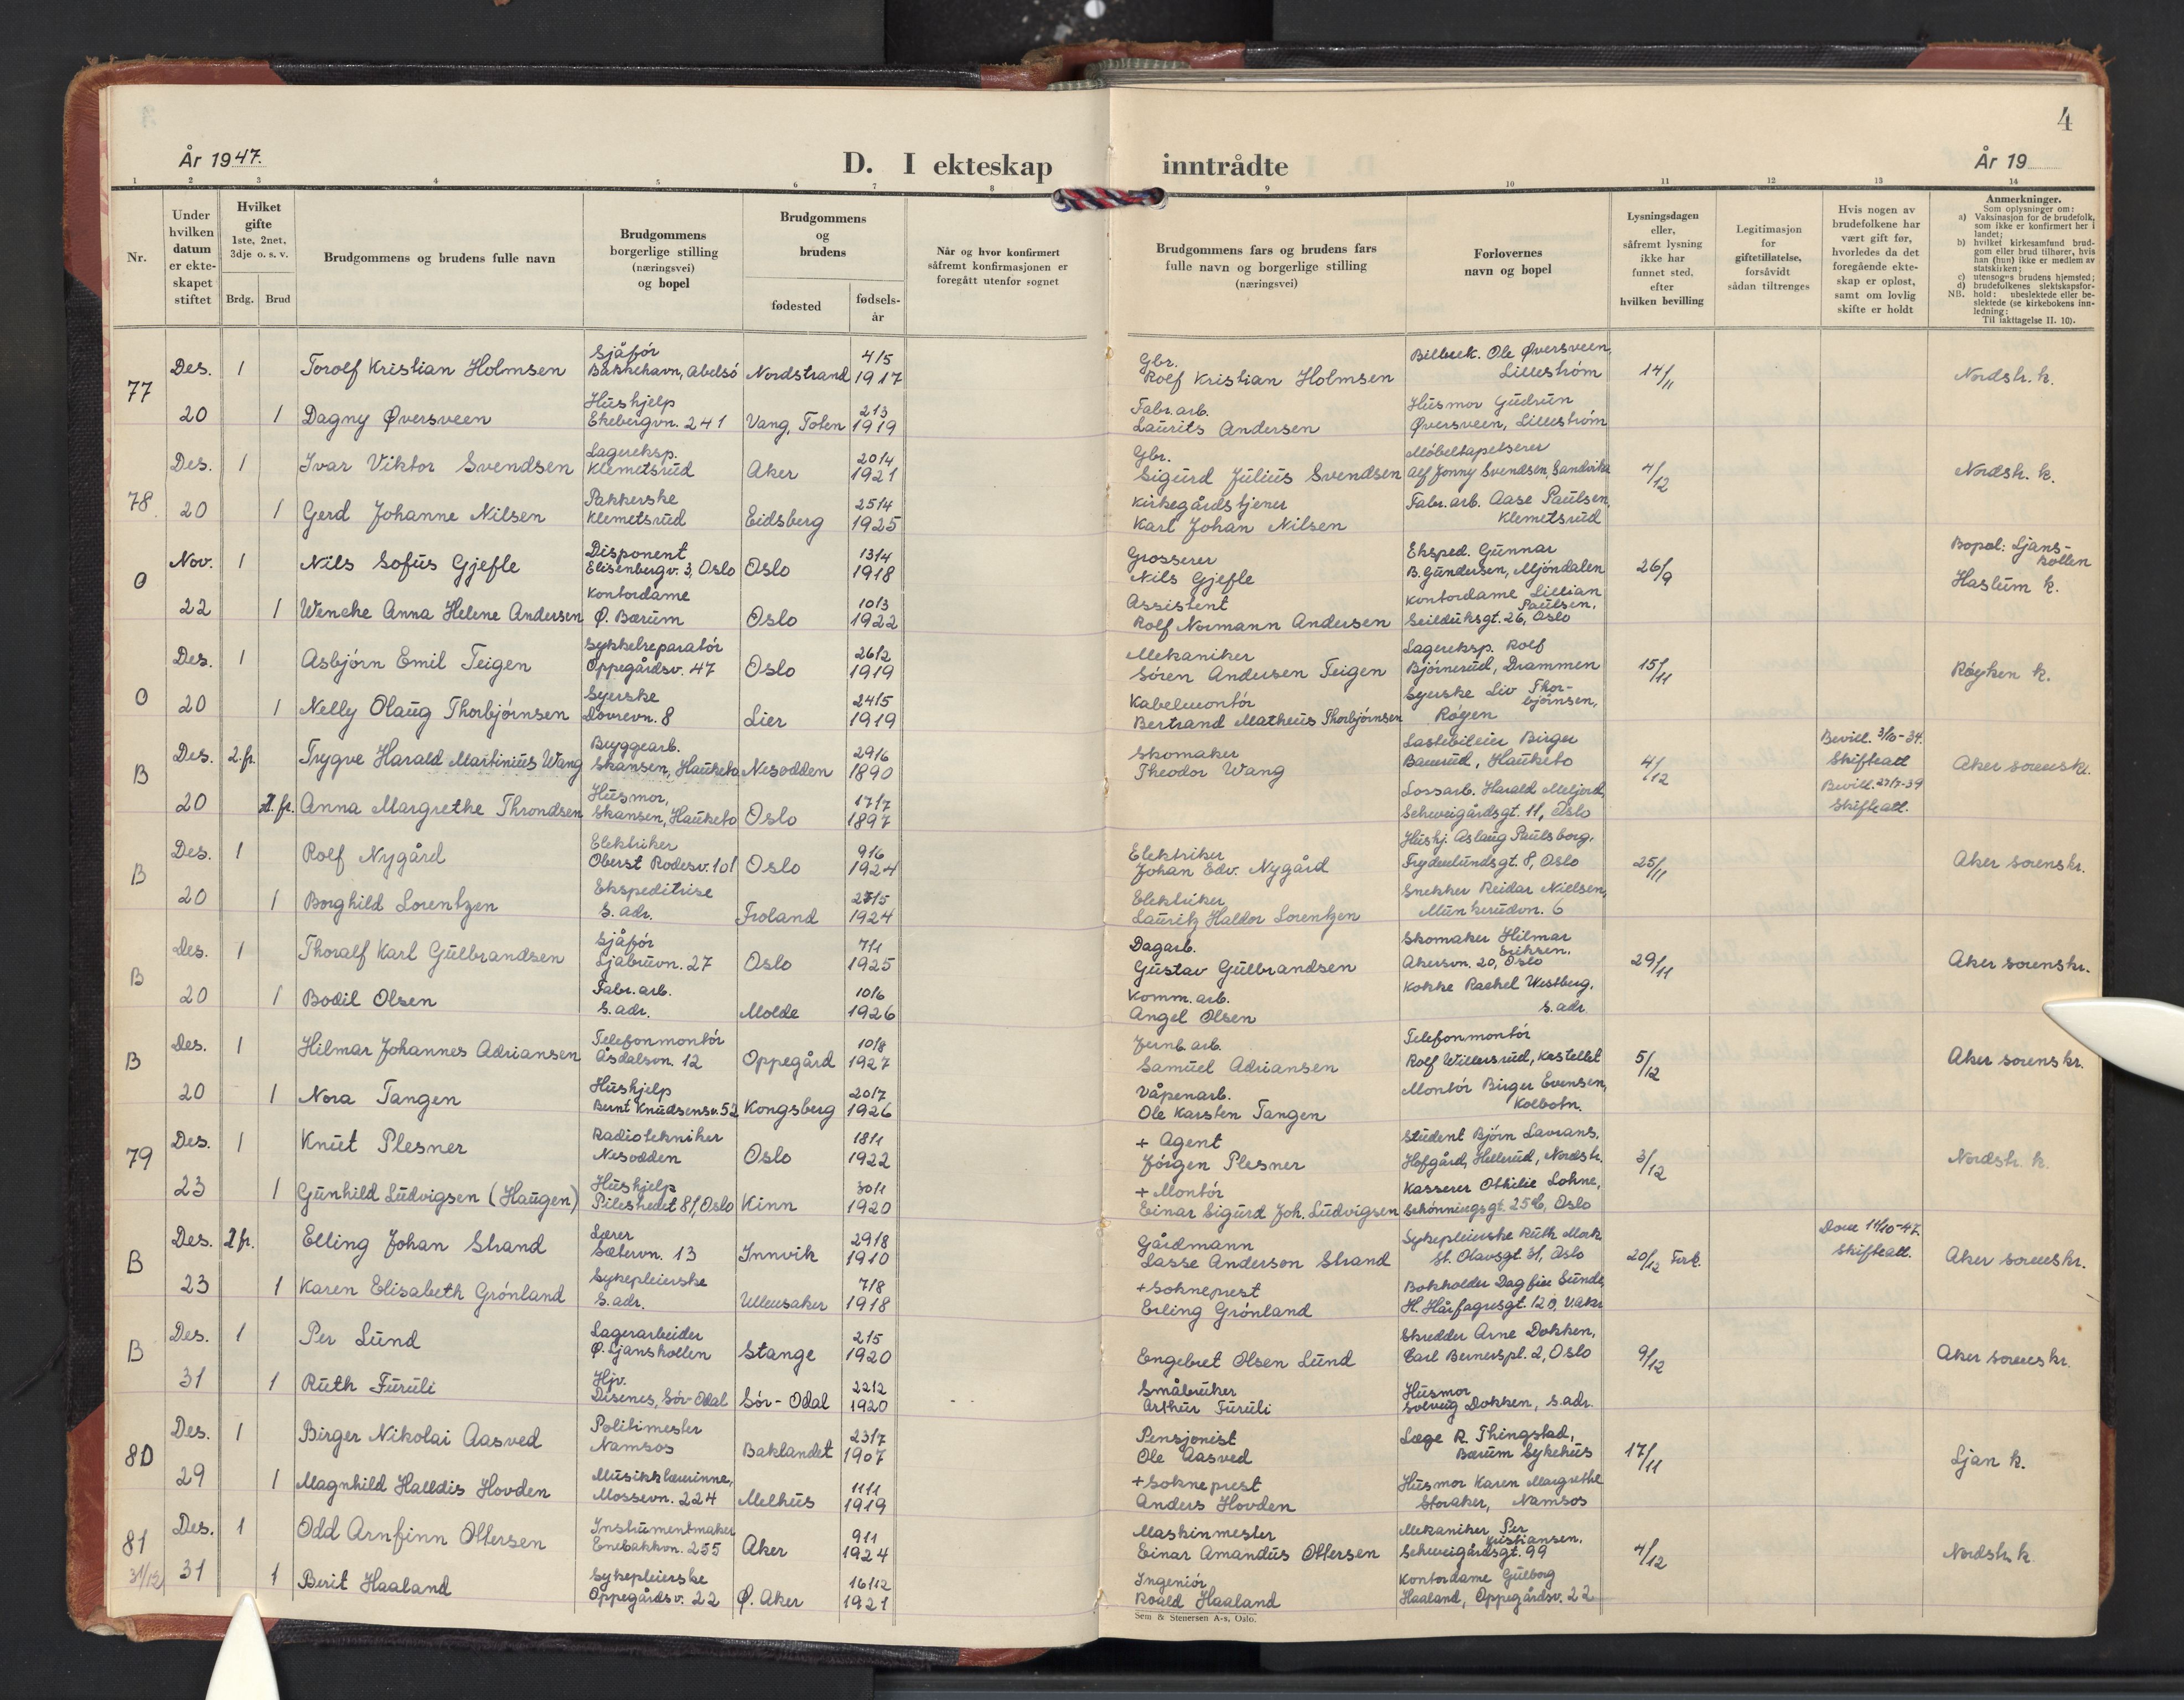 4
År 1947.
D. I ekteskap inntrådte
År 19
1 2 3 4 5 6 7 8 9 10 11 12 13 14
Nr.
Under hvilken datum er ekte-skapet stiftet
Hvilket gifte 1ste, 2net, 3dje o. s. v.
Brdg. Brud
Brudgommens og brudens fulle navn
Brudgommens borgerlige stilling (næringsvei) og bopel
Brudgommens og brudens
fødested
fødsels-år
Når og hvor konfirmert såfremt konfirmasjonen er foregått utenfor sognet
Brudgommens fars og brudens fars fulle navn og borgerlige stilling (næringsvei)
Forlovernes navn og bopel
Lysningsdagen eller, såfremt lysning ikke har funnet sted, efter hvilken bevilling
Legitimasjon for giftetillatelse, forsåvidt sådan tiltrenges
Hvis nogen av brudefolkene har vært gift før, hvorledes da det foregående ekte-skap er opløst, samt om lovlig skifte er holdt
Anmerkninger.
Som oplysninger om:
a) Vaksinasjon for de brudefolk, som ikke er konfirmert her i landet;
b) hvilket kirkesamfund brud-gom eller brud tilhører, hvis han (hun) ikke er medlem av statskirken;
c) utensogns brudens hjemsted;
d) brudefolkenes slektskapsfor-hold: ubeslektede eller be-slektede (se kirkebokens inn-ledning:
NB.
Til iakttagelse II. 10).
77 Des. 1 Torolf Kristian Holmsen Sjåfør Bakkehavn, Abelsø Nordstrand 4/5 1917 Gbr. Rolf Kristian Holmsen Bilbrek. Ole Øversveen, Lillestrøm 14/11 Nordstr. k.
20 1 Dagny Øversveen Hushjelp Ekebergvn. 241 Vang, Toten 21/3 1919 Fabr.arb. Laurits Andersen Husmor Gudrun Øversveen, Lillestrøm
78 Des. 1 Ivar Viktor Svendsen Lagereksp. Klemetsrud Aker 20/4 1921 Gbr. Sigurd Julius Svendsen Møbeltapetserer Alf Jonny Svendsen, Sandvika 4/12 Nordstr. k.
20 1 Gerd Johanne Nilsen Pakkerske Klemetsrud Eidsberg 25/4 1925 Kirkegårdstjener Karl Johan Nilsen Fabr. arb. Aase Paulsen, Klemetsrud
O Nov. 1 Nils Sofus Gjefle Disponent Elisenbergv. 3, Oslo Oslo 13/4 1918 Grosserer Nils Gjefle Eksped. Gunnar B. Gundersen, Mjøndalen 26/9 Bopel: Ljans-kollen Haslum k.
22 1 Wenche Anna Helene Andersen Kontordame Ø. Bærum Oslo 10/3 1922 Assistent Rolf Normann Andersen Kontordame Lillian Paulsen, Seilduksgt. 26, Oslo
O Des. 1 Asbjørn Emil Teigen Sykkelreparatør Oppegårdsv. 47 Oslo 26/2 1919 Mekaniker Søren Andersen Teigen Lagereksp. Rolf Bjørnerud, Drammen 15/11 Røyken k.
20 1 Nelly Olaug Thorbjørnsen Syerske Dovrevn. 8 Lier 24/5 1919 Kabelmontør Bertrand Matheus Thorbjørnsen Syerske Liv Thor-bjørnsen, Røyen
B Des. 2. fr. Trygve Harald Martinius Wang Bryggearb. Skansen, Hauketo Nesodden 29/6 1890 Skomaker Theodor Wang Lastebileier Birger Bamrud, Hauketo 4/12 Bevill. 3/10-34. Skifteatt Aker sorenskr.
20 2. fr. Anna Margrethe Throndsen Husmor, Skansen, Hauketo Oslo 17/7 1897 Lossarb. Harald Meljord, Schweigårdsgt. 11, Oslo Bevill. 27/7-39 Skifteatt.
B Des. 1 Rolf Nygård Elektriker Oberst Rodesv. 101 Oslo 9/6 1924 Elektriker Johan Edv. Nygård Hushj. Aslaug Paulsborg, Frydenlundsgt. 8, Oslo 25/11 Aker sorenskr.
20 1 Borghild Lorentzen Ekspeditrise s. adr. Froland 27/5 1924 Elektriker Lauritz Haldor Lorentzen Snekker Reidar Nielsen, Munkerudvn. 6
B Des. 1 Thoralf Karl Gulbrandsen Sjåfør Ljabruvn. 27 Oslo 7/1 1925 Dagarb. Gustav Gulbrandsen Skomaker Hilmar Eriksen, Akersvn. 20, Oslo 29/11 Aker sorenskr.
20 1 Bodil Olsen Fabr. arb. s. adr. Molde 10/6 1926 Komm. arb. Angel Olsen Kokke Rachel Westberg, s. adr
B Des. 1 Hilmar Johannes Adriansen Telefonmontør Åsdalsvn. 12 Oppegård 10/8 1927 Jernb. arb. Samuel Adriansen Telefonmontør Rolf Willersrud, Kastellet 5/12 Aker sorenskr.
20 1 Nora Tangen Hushjelp Bernt Knudsensv. 52 Kongsberg 20/7 1926 Våpenarb. Ole Karsten Tangen Montør Birger Evensen, Kolbotn.
79 Des. 1 Knut Plesner Radiotekniker Nesodden Oslo 18/1 1922 + Agent Jørgen Plesner Student Bjørn Lavrans. Hofgård, Hellerud, Nordstr. 3/12 Nordstr. k.
23 1 Gunhild Ludvigsen (Haugen) Hushjelp Pilestredet 81, Oslo Kinn 30/1 1920 + Montør Einar Sigurd Joh. Ludvigsen Kasserer Othilie Lohne, Schønningsgt. 25b, Oslo
B Des. 2 fr. Elling Johan Strand Lærer Sætervn. 13 Innvik 29/8 1910 Gårdmann Lasse Anderson Strand Sykepleierske Ruth Mork St. Olavsgt. 31, Oslo 20/12 Dom 11/10-47. Skifteatt. Aker sorenskr.
23 1 Karen Elisabeth Grønland Sykepleierske s. adr. Ullensaker 7/8 1918 + Sokneprest Erling Grønland Bokholder Dagfinn Sunde, H. Hårfagresgt. 12
B Des. 1 Per Lund Lagerarbeider Ø. Ljanskollen Stange 21/5 1920 Engebret Olsen Lund Skredder Arne Dokken, Carl Bernerspl. 2, Oslo 9/12 Aker sorenskr.
31 1 Ruth Furuli Hjv. Disenes, Sør-Odal Sør-Odal 22/2 1920 Småbruker Arthur Furuli Husmor Solveig Dokken, s. adr.
80 Des. 1 Birger Nikolai Aasved Politimester Namsos Baklandet 23/7 1907 Pensjonist Ole Aasved Læge R. Thingstad, Bærum Sykehus 17/11 Ljan k.
29 1 Magnhild Halldis Hovden Musikklærerinne, Mossevn. 224 Melhus 11/1 1919 + Sokneprest Anders Hovden Husmor Karen Margrethe Storaker, Namsos
81 Des. 1 Odd Arnfinn Ottersen Instrumentmaker Enebakkvn. 255 Aker 9/1 1924 Maskinmester Einar Amandus Ottersen Mekaniker Per Kristiansen. Schweigårdsgt. 99 4/12 Nordstr. k
31/12 31 1 Berit Haaland Sykepleierske Oppegårdsv. 22 Ø. Aker 16/12 1921 Ingeniør Roald Haaland Kontordame Gulborg Haaland, Oppegårdsv. 22
Sem & Stenersen A-s, Oslo.